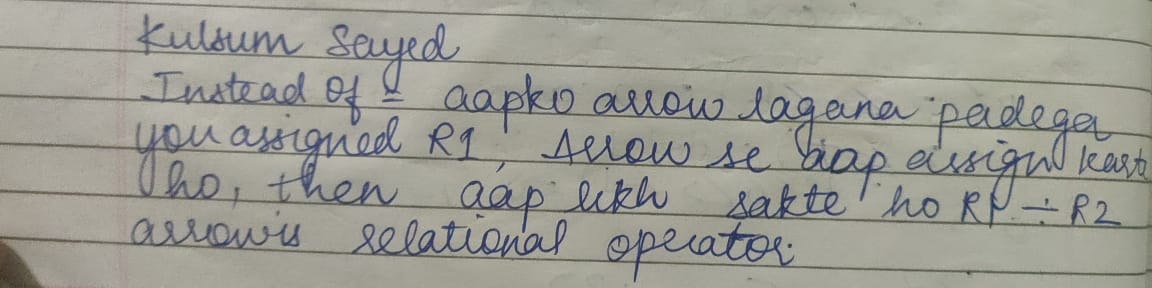 Kulsum Sayed
Instead of = aapko arrow lagana padega
you assigned R1, Arrow se aap assign karte
ho, then aap likh sakte ho R1 ÷ R2
arrow is relational operator.